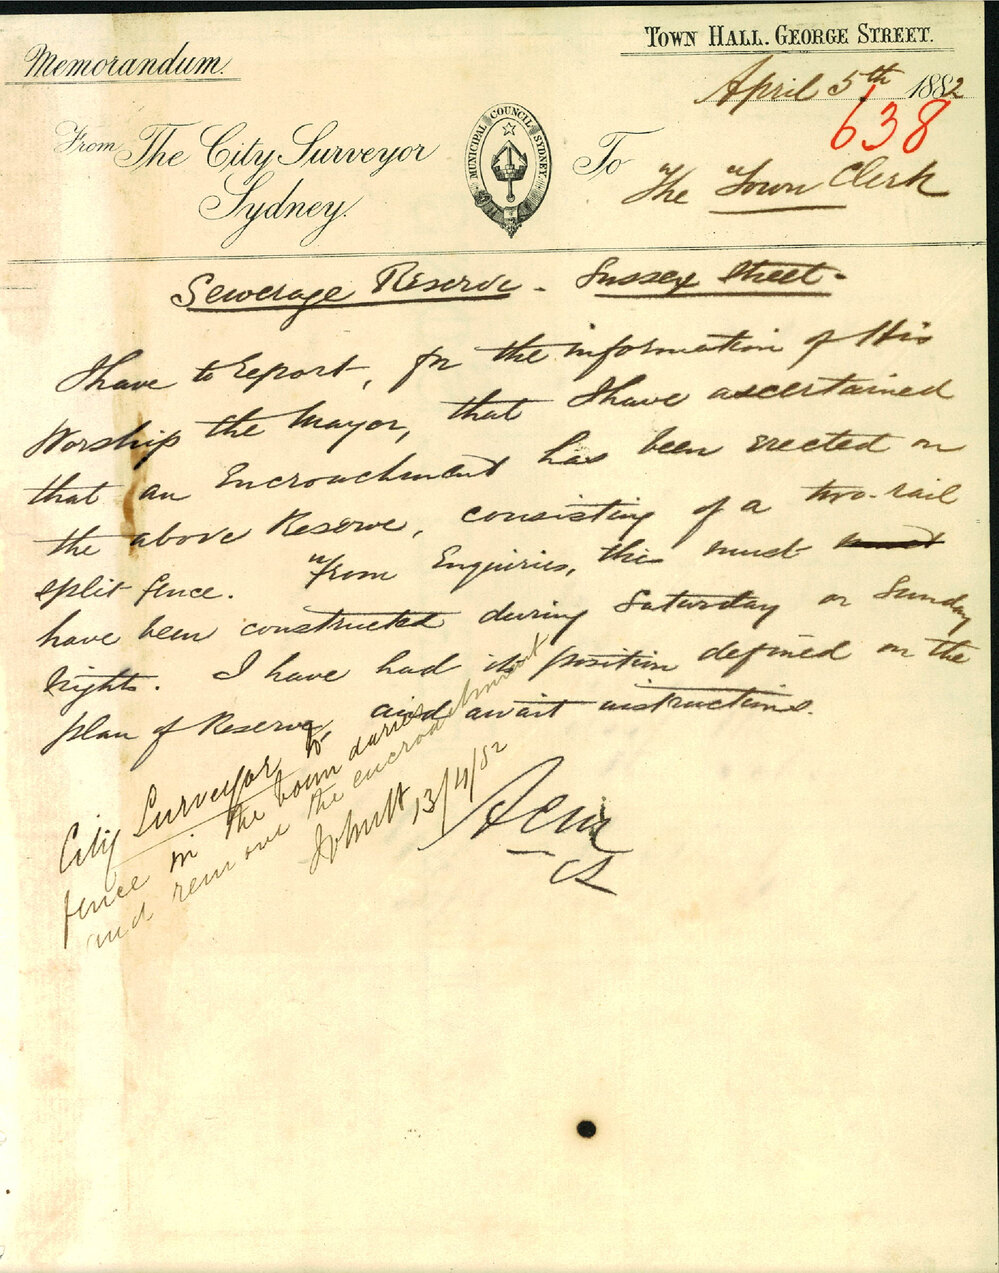 Memorandum.
Town Hall. George Street.
April 5th 1882
638
From The City Surveyor
Sydney.
MUNICIPAL COUNCIL SYDNEY
To
The Town Clerk
Sewerage Reserve - Sussex Street -
I have to report, for the information of His
Worship the Mayor, that I have ascertained
that an Encroachment has been erected on
the above Reserve, consisting of a two-rail
split fence. From Enquiries, this must must
have been constructed during Saturday or Sunday
Nights. I have had its position defined on the
plan of Reserve, and await instructions.
City Surveyor to
fence in the boundaries
and remove the encroachment
13/4/82
CS